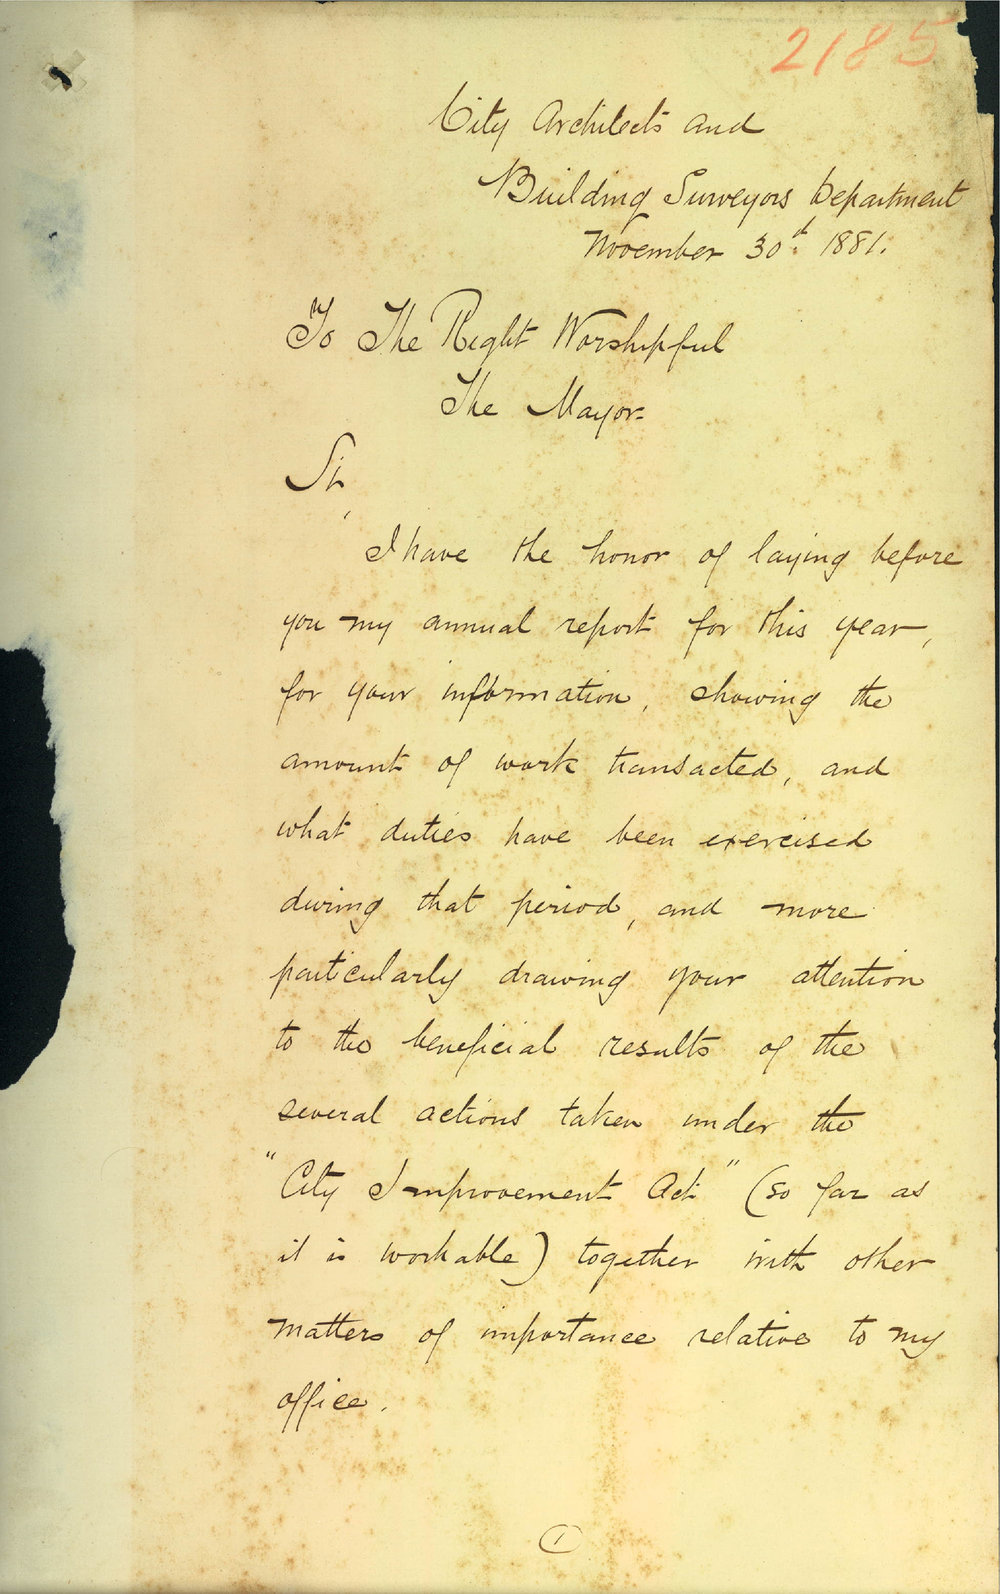 2185
City Architects and
Building Surveyors Department
November 30th 1881.
To The Right Worshipful
The Mayor
Sir,
I have the honor of laying before
you my annual report for this year,
for your information, showing the
amount of work transacted, and
what duties have been exercised
during that period, and more
particularly drawing your attention
to the beneficial results of the
several actions taken under the
"City Improvement Act" (so far as
it is workable) together with other
matters of importance relative to my
office.
1